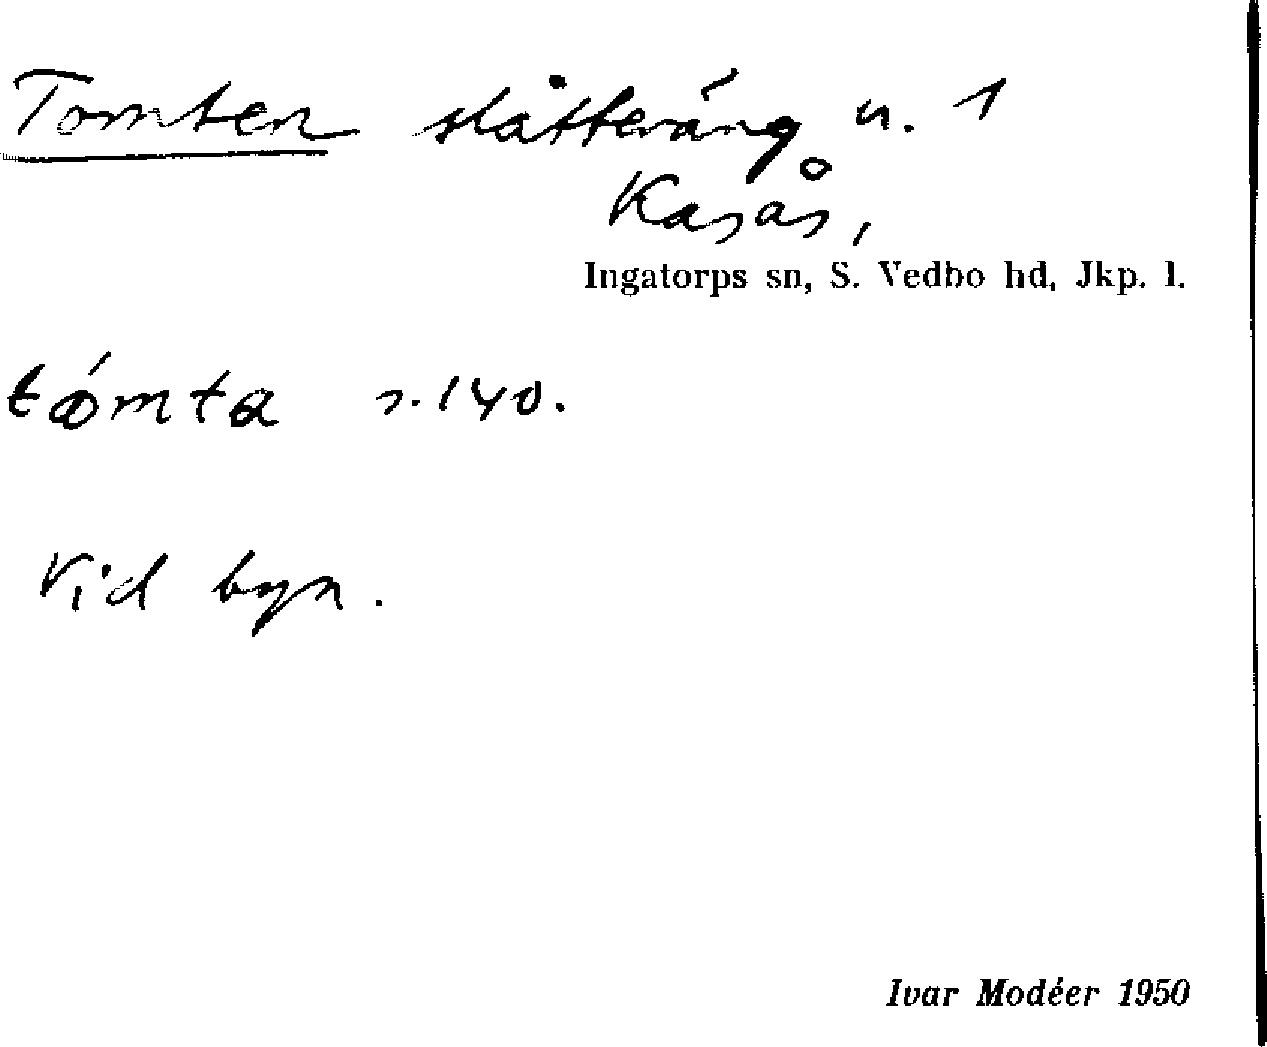 Tomten slåtteräng n. 1
Kasås,
Ingatorps sn, S. Vedbo hd, Jkp. l.
tómta s. 140.
Vid byn.
Ivar Modéer 1950